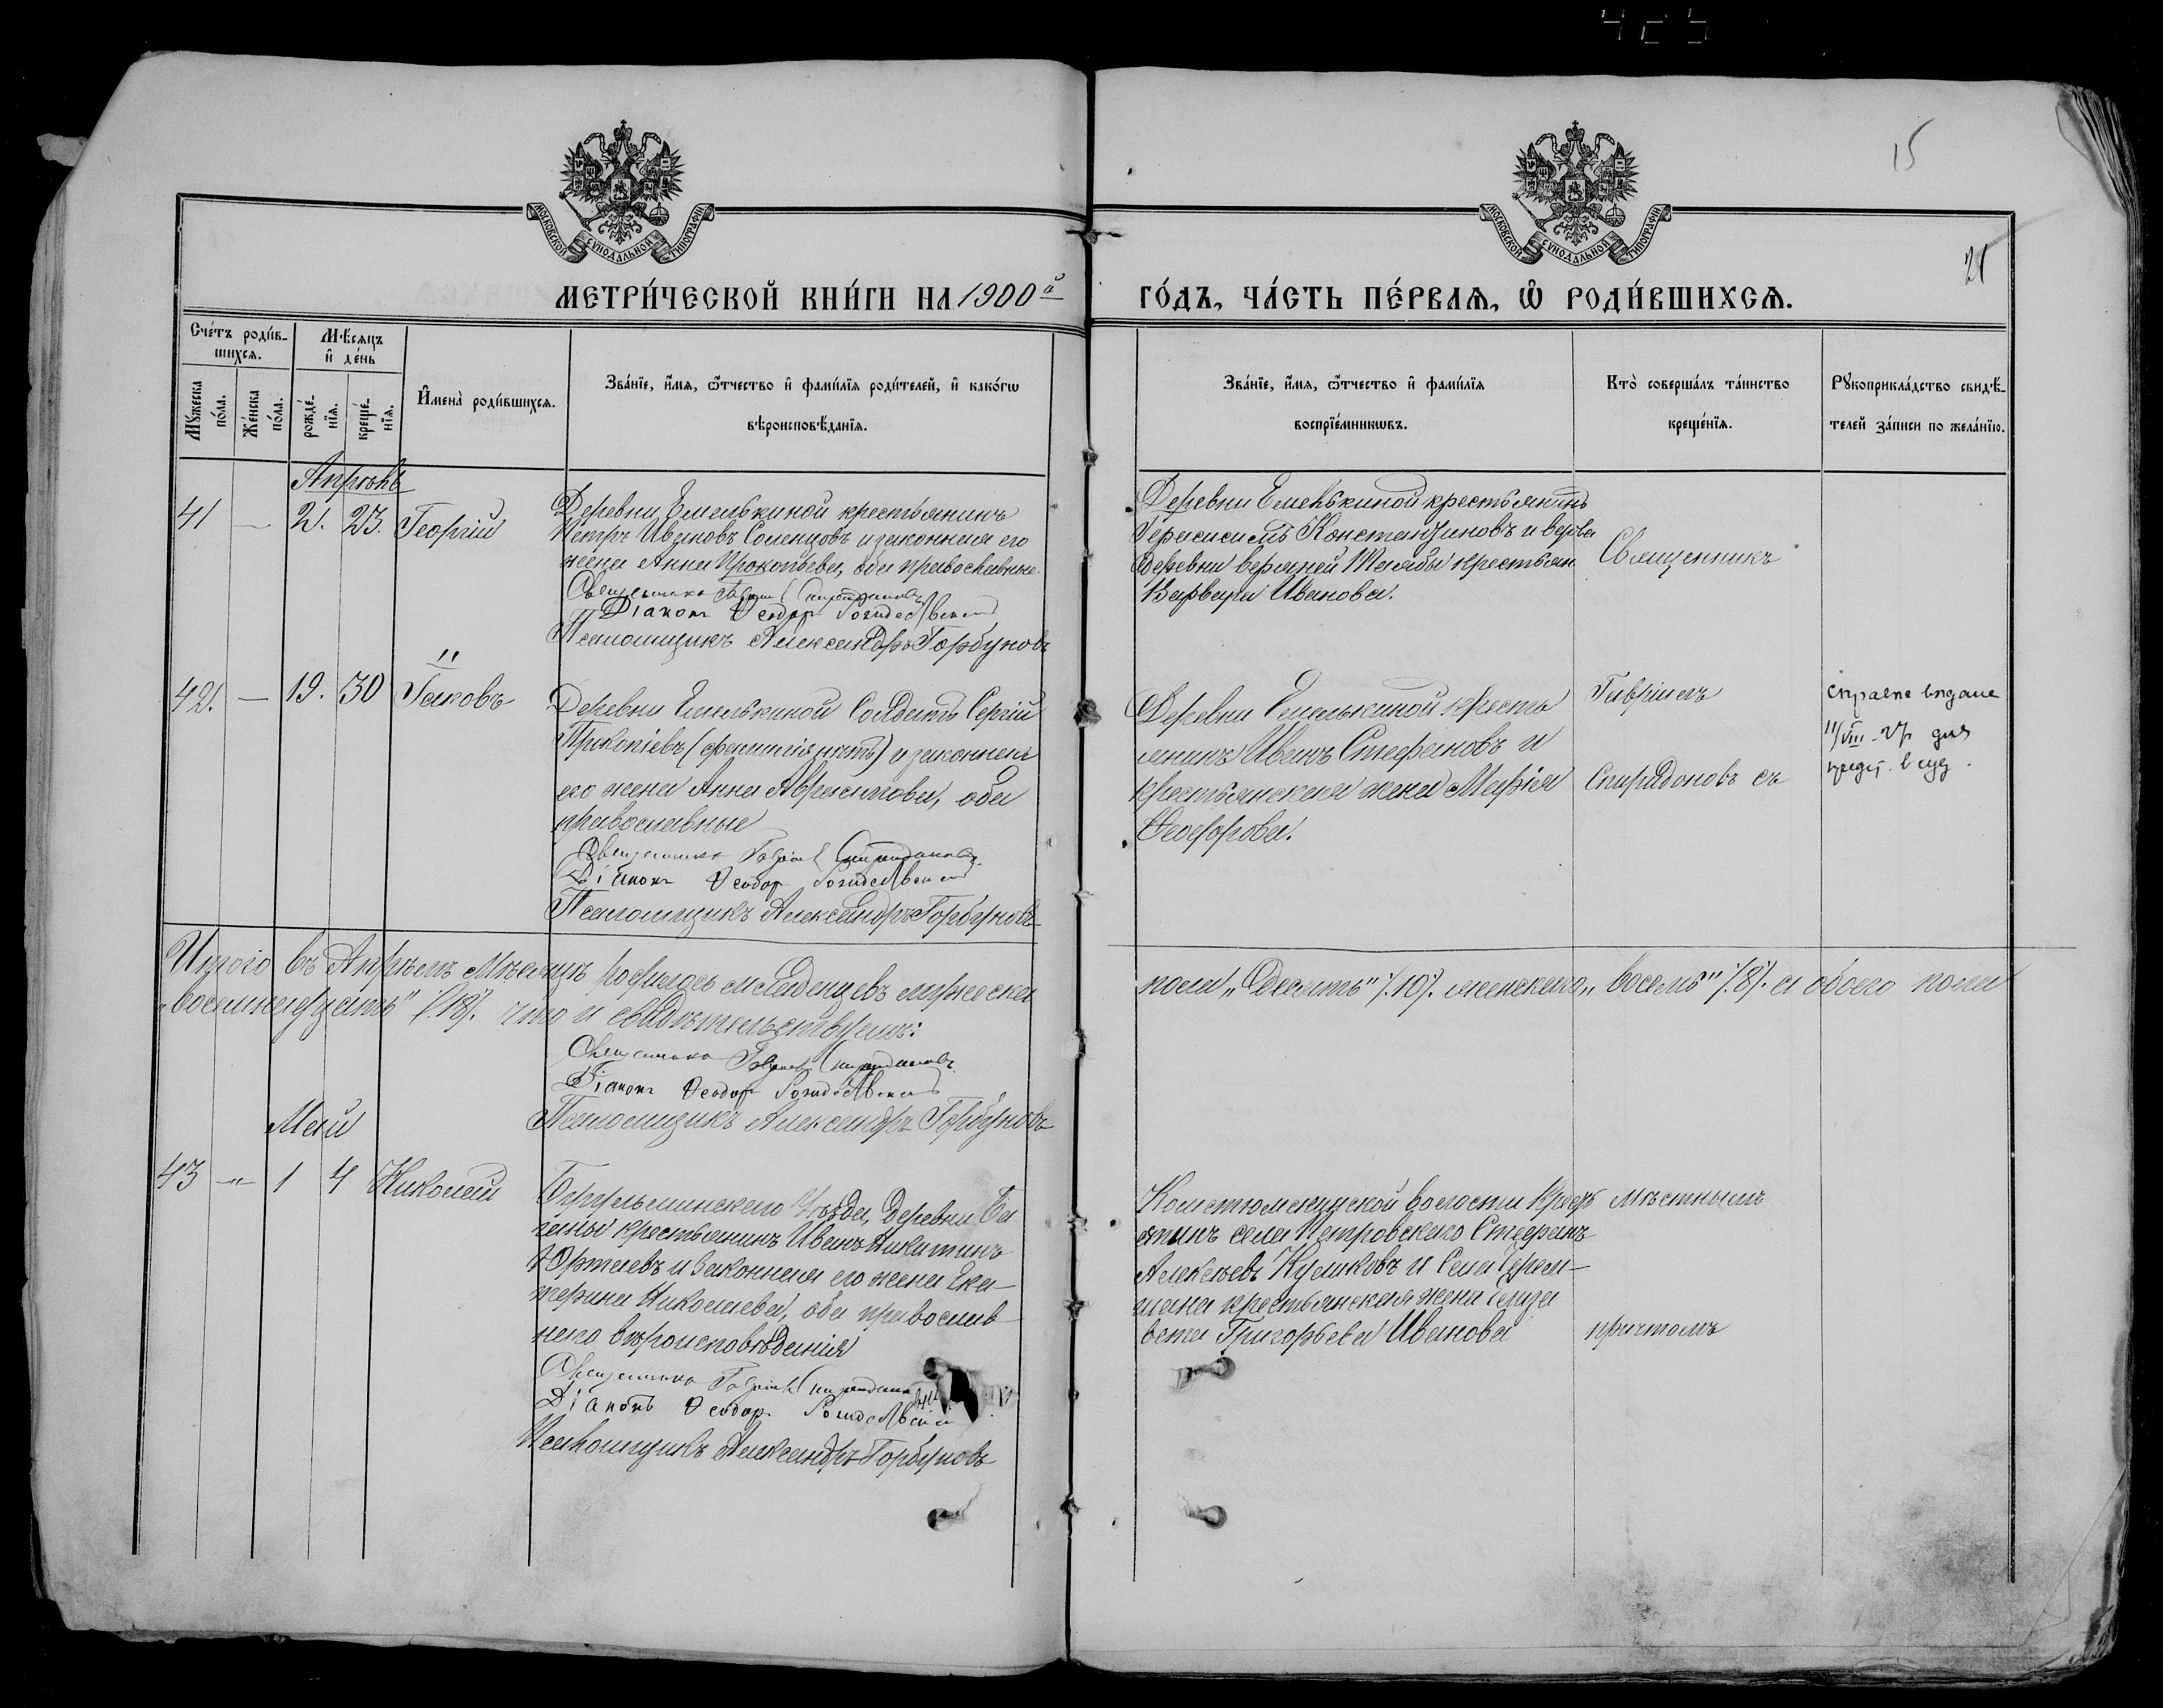 15
21
МОСКОВСКОЙ СѴНОДАЛЬНОЙ ТИПОГРАФІИ
МОСКОВСКОЙ СѴНОДАЛЬНОЙ ТИПОГРАФІИ
МЕТРИ́ЧЕСКОЙ КНИ́ГИ НА 1900й
ГО́ДЪ, ЧА́СТЬ ПЕ́РВАѦ, Ѿ РОДИ́ВШИХСѦ.
Сче́тъ роди́в-
шихсѧ.
Мꙋ́жеска по́ла.
Же́нска по́ла.
Мѣ́сѧцъ
и҆ де́нь
рожде́-
нїѧ.
креще́-
нїѧ.
И҆мена̀ роди́вшихсѧ.
Зва́нїе, и҆́мѧ, ѻ҆́тчество и҆ фами́лїѧ роди́телей, и҆ како́гѡ
вѣроисповѣ́данїѧ.
Зва́нїе, и҆́мѧ, ѻ҆́тчество и҆ фами́лїѧ
воспрїе́мникѡвъ.
Кто̀ соверша́лъ та́инство
креще́нїѧ.
Рꙋкоприкла́дство свидѣ́-
телей за́писи по жела́нїю.
Апрѣль
41 — 21. 23. Георгій
Деревни Емелькиной крестьянинъ
Петръ Ивановъ Соленцовъ и законная его
жена Анна Прокопьева, оба православные
Священникъ Гавріилъ Спиридоновъ
Діаконъ Ѳеодоръ Рождественскій
Псаломщикъ Александръ Горбуновъ
Деревни Емелькиной крестьянинъ
Герасимъ Константиновъ и
деревни верхней крестьян.
Варвара Иванова.
Священникъ
42. — 19. 30 Іаковъ
Деревни Емелькиной Солдатъ Сергій
Прокопіевъ (фамилія нѣтъ) и законная
его жена Анна Авраамова, оба
православные
Священникъ Гавріилъ Спиридоновъ
Діаконъ Ѳеодоръ Рождественскій
Псаломщикъ Александръ Горбуновъ
Деревни Емелькиной кресть
янинъ Иванъ Стефановъ и
крестьянская жена Марія
Ѳеодорова.
Гавріилъ
Спиридоновъ съ
справка выдана
11/VIII 27 г. для
предст. в суд.
Итого въ Апрѣлѣ мѣсяцѣ родилось младенцевъ мужска
пола „Десять" /.10/. женскаго „восемь" /.8/. а обоего пола
„восемнадцать" /.18/. что и свидѣтельствуемъ:
Священникъ Гавріилъ Спиридоновъ
Діаконъ Ѳеодоръ Рождественскій
Псаломщикъ Александръ Горбуновъ
Май
43 — 1 4 Николай
Бугульминскаго Уѣзда, Деревни
крестьянинъ Иванъ Никитинъ
и Законная его жена Ека-
терина Николаева, оба православ
наго вѣроисповѣданія
Священникъ Гавріилъ Спиридоновъ
Діаконъ Ѳеодоръ Рождественскій
Псаломщикъ Александръ Горбуновъ
волости крест
янинъ села Петровскаго Стефанъ
Алексѣевъ Куликовъ и Села Черем-
шана крестьянская жена Елиза
вета Григорьева Иванова
мѣстнымъ
причтомъ